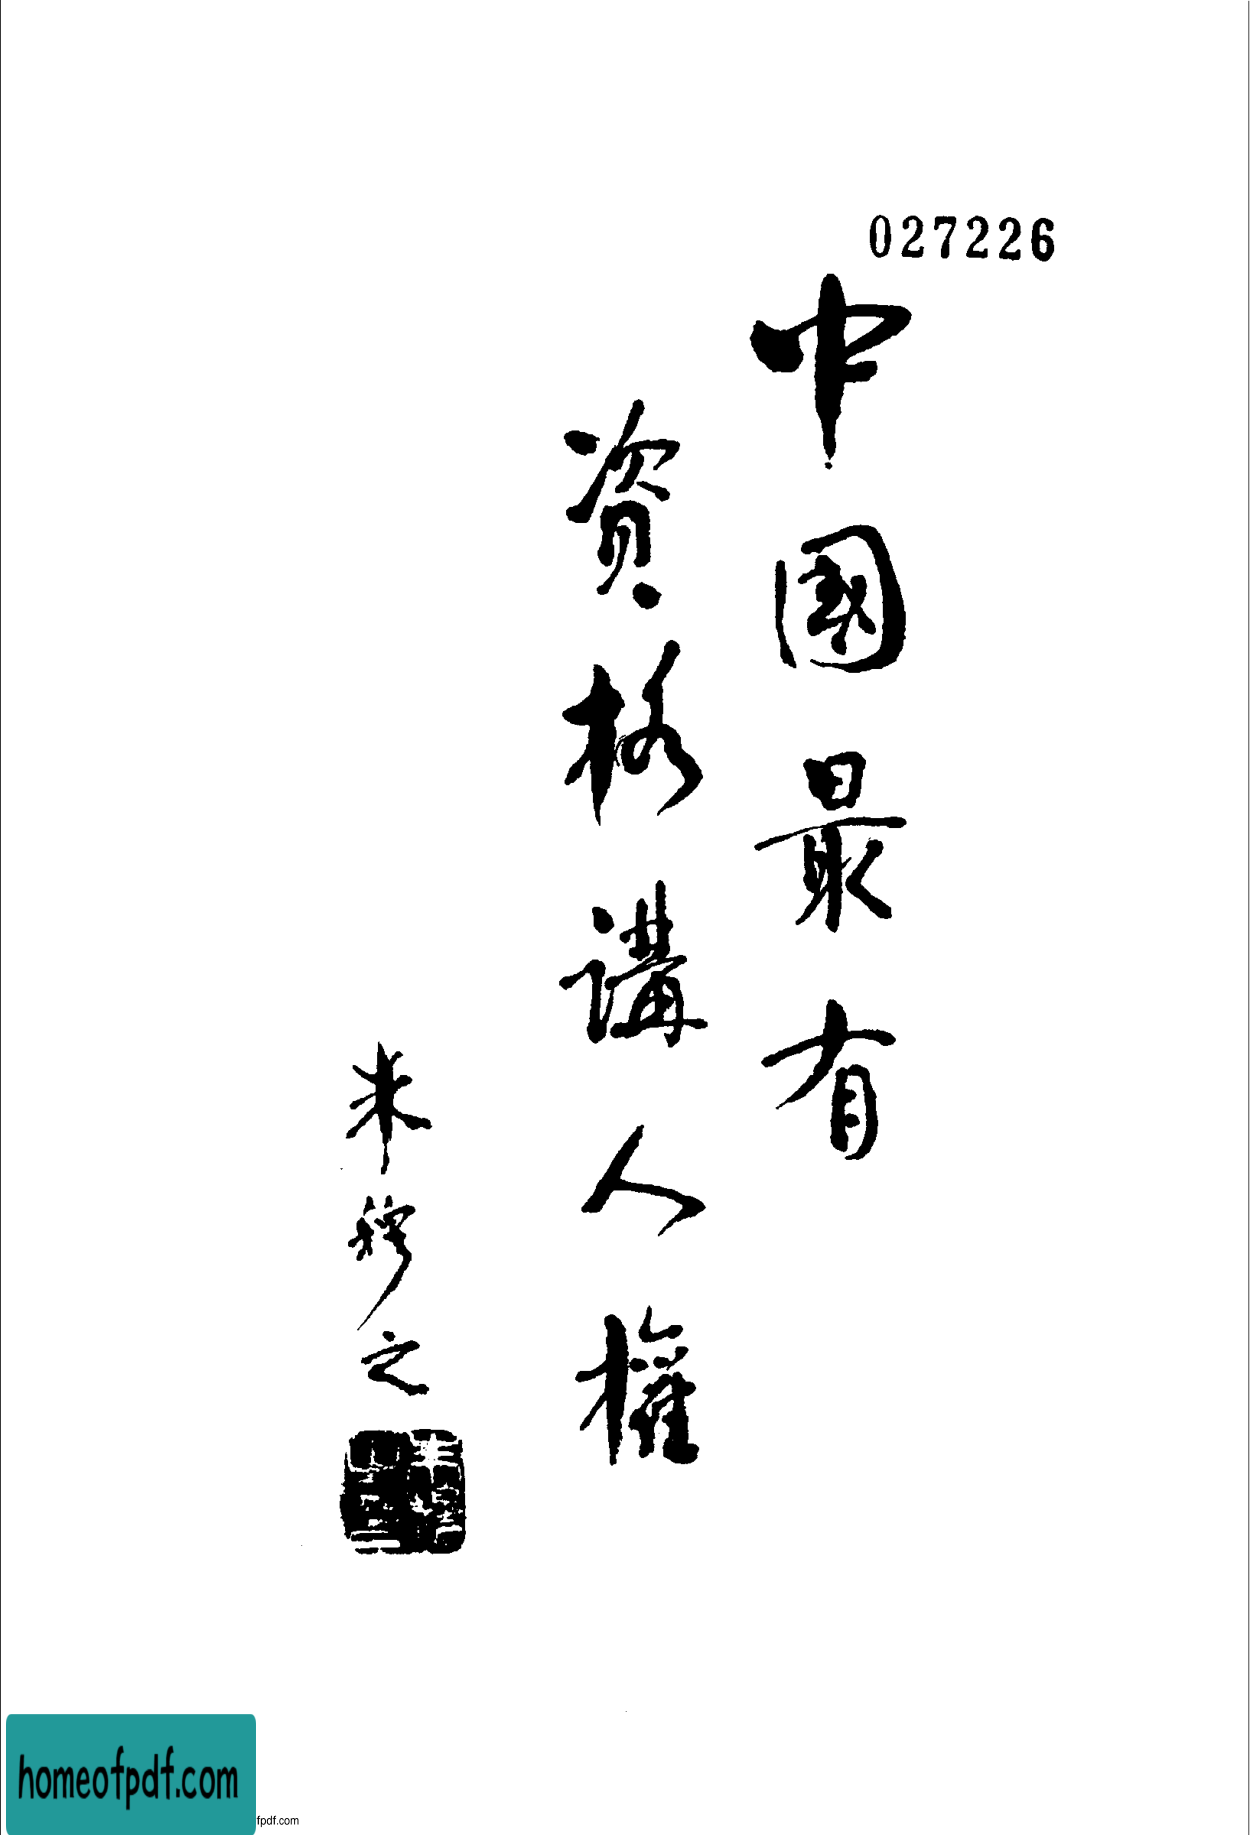 027226
中國最有
資格講人權
朱穆之
homeofpdf.com
fpdf.com